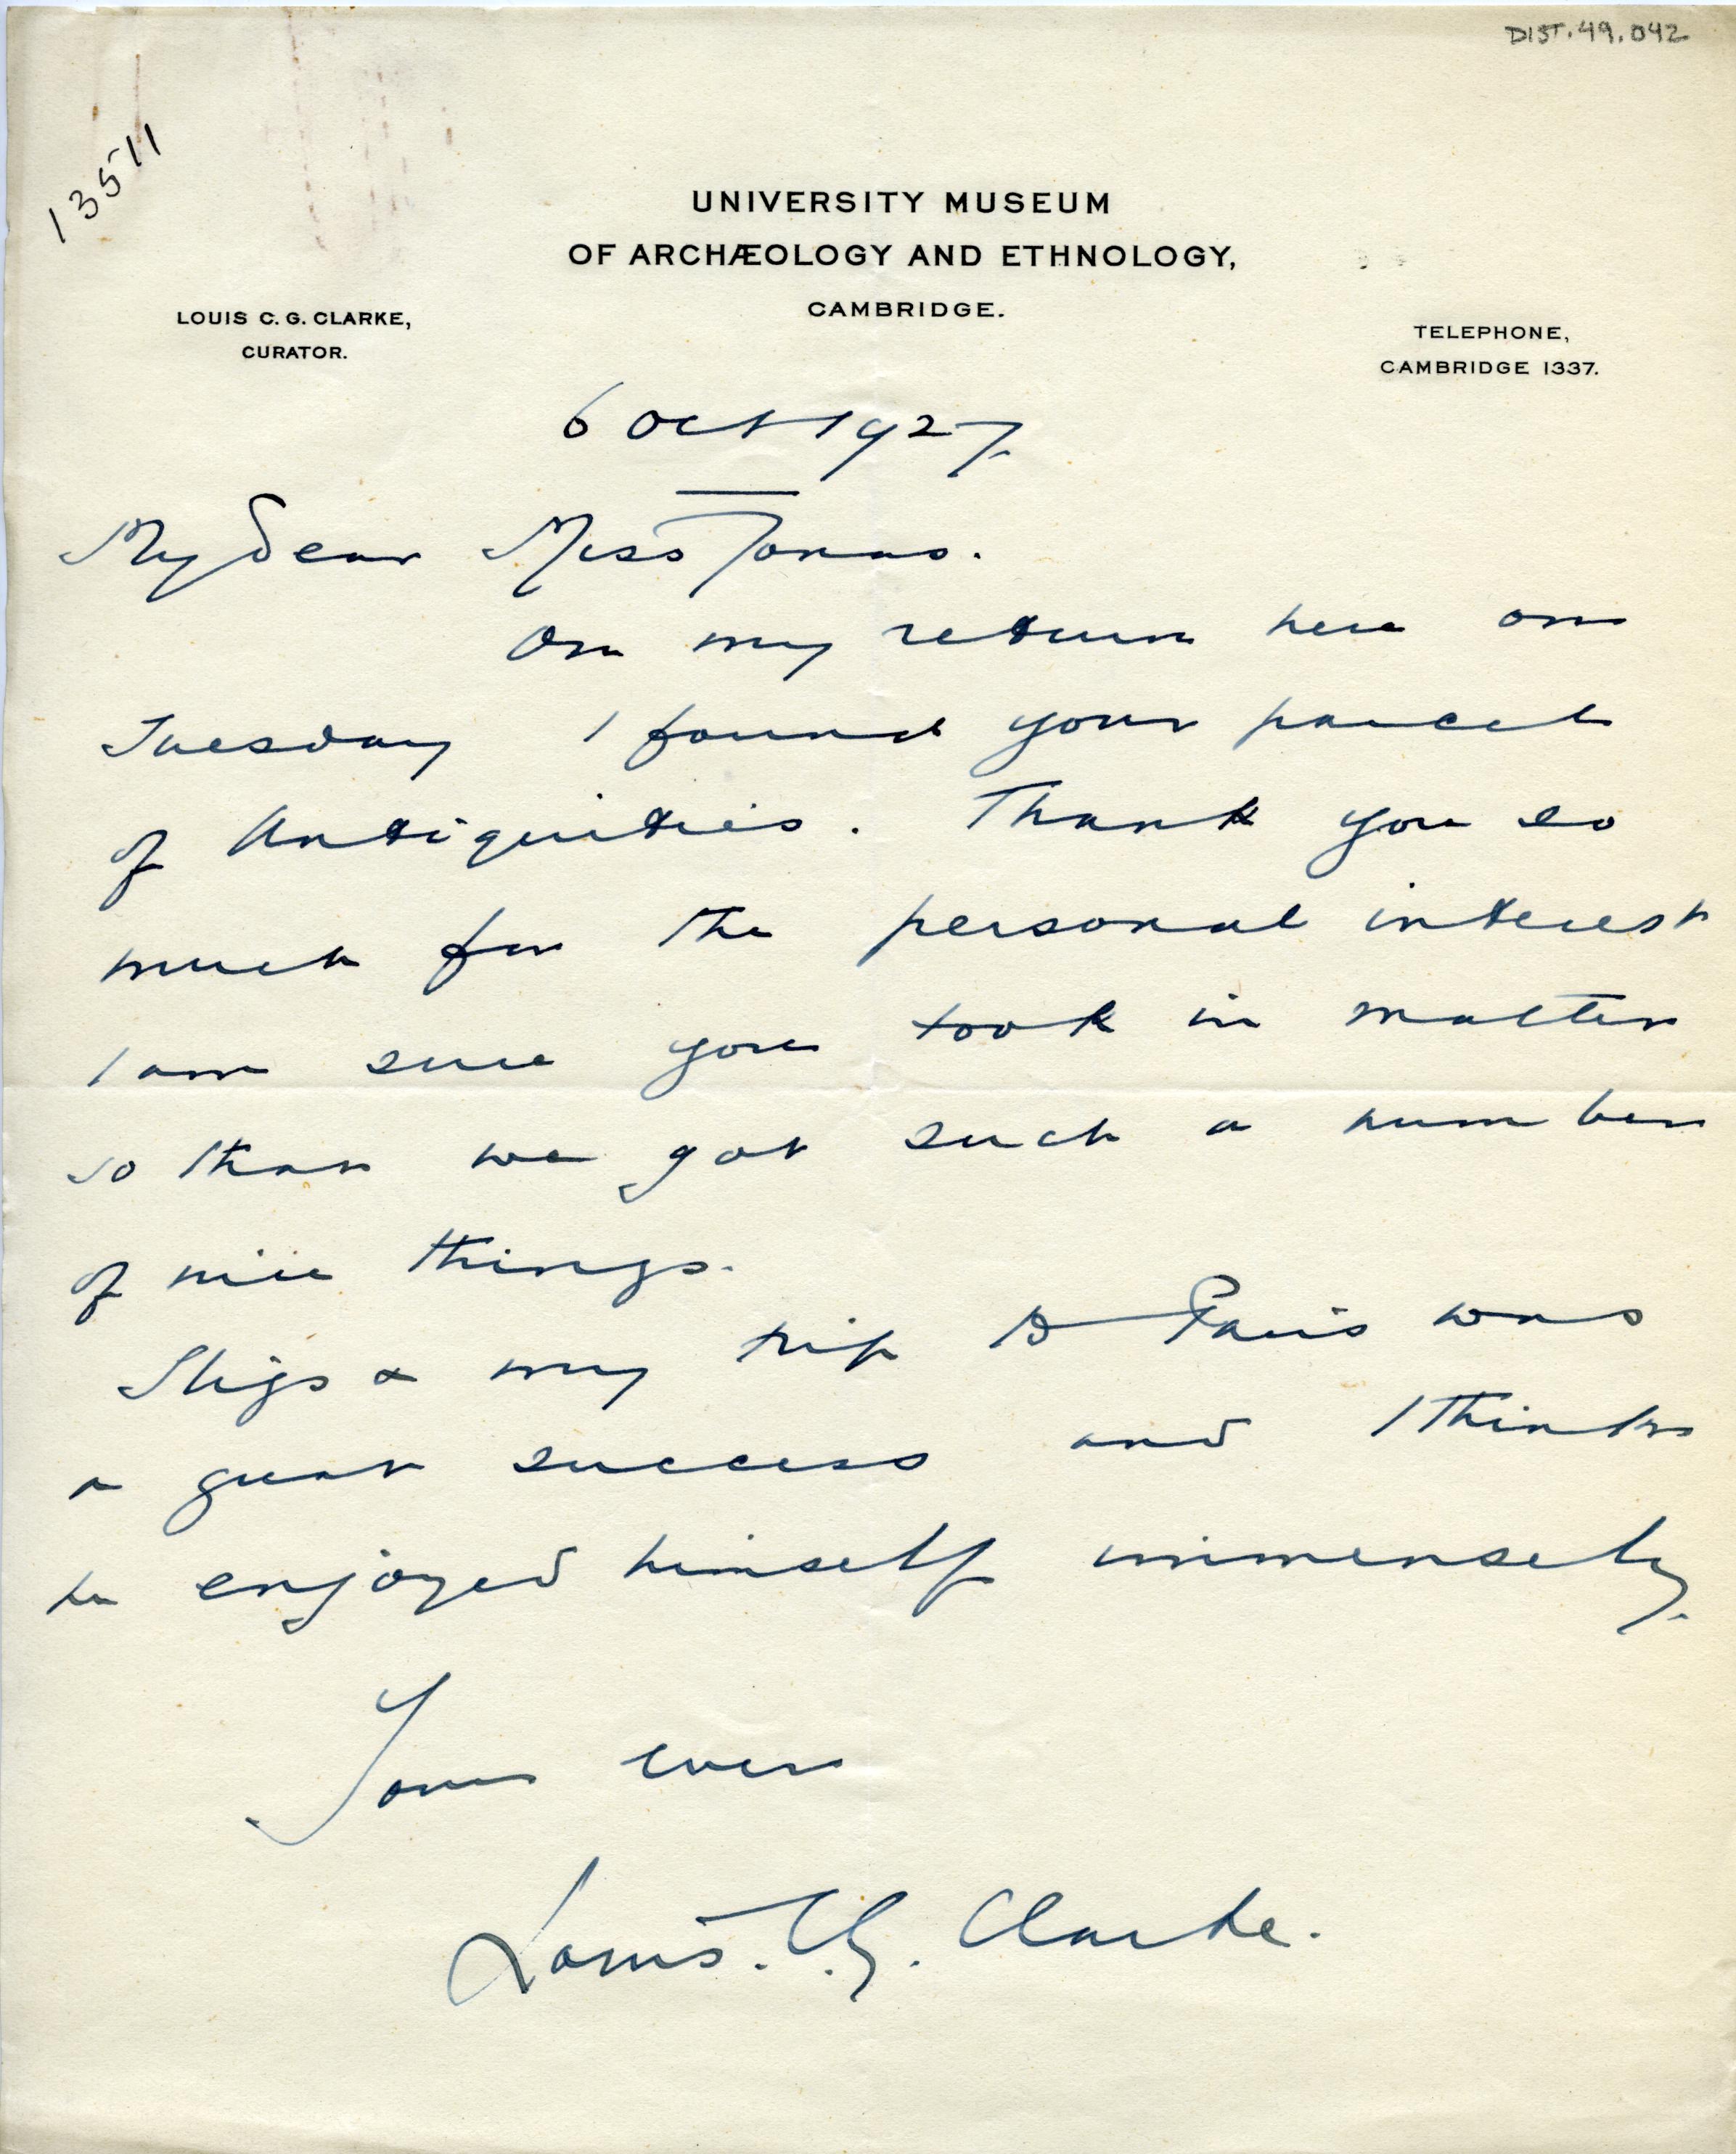 DIST.49.042
13511
UNIVERSITY MUSEUM
OF ARCHÆOLOGY AND ETHNOLOGY,
CAMBRIDGE.
LOUIS C. G. CLARKE,
CURATOR.
TELEPHONE,
CAMBRIDGE 1337.
6 Oct 1927.
My dear Miss Jonas.
On my return here on
Tuesday I found your parcel
of Antiquities. Thank you so
much for the personal interest
I am sure you took in matter
so that we got such a number
of nice things.
& my trip to Paris was
a great success and I think
he enjoyed himself immensely.
Yours ever
Louis. C. G. Clarke.